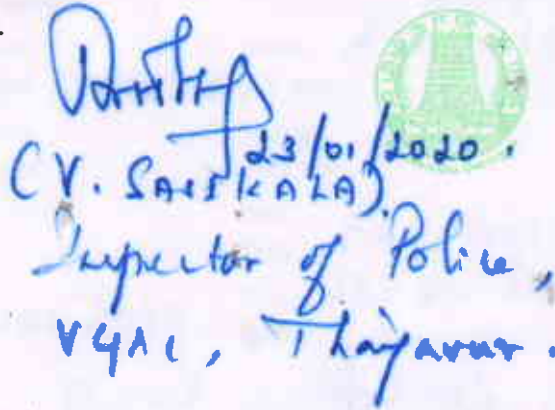 23/01/2020.
(V. SASIKALA)
Inspector of Police,
V&AC, Thanjavur.